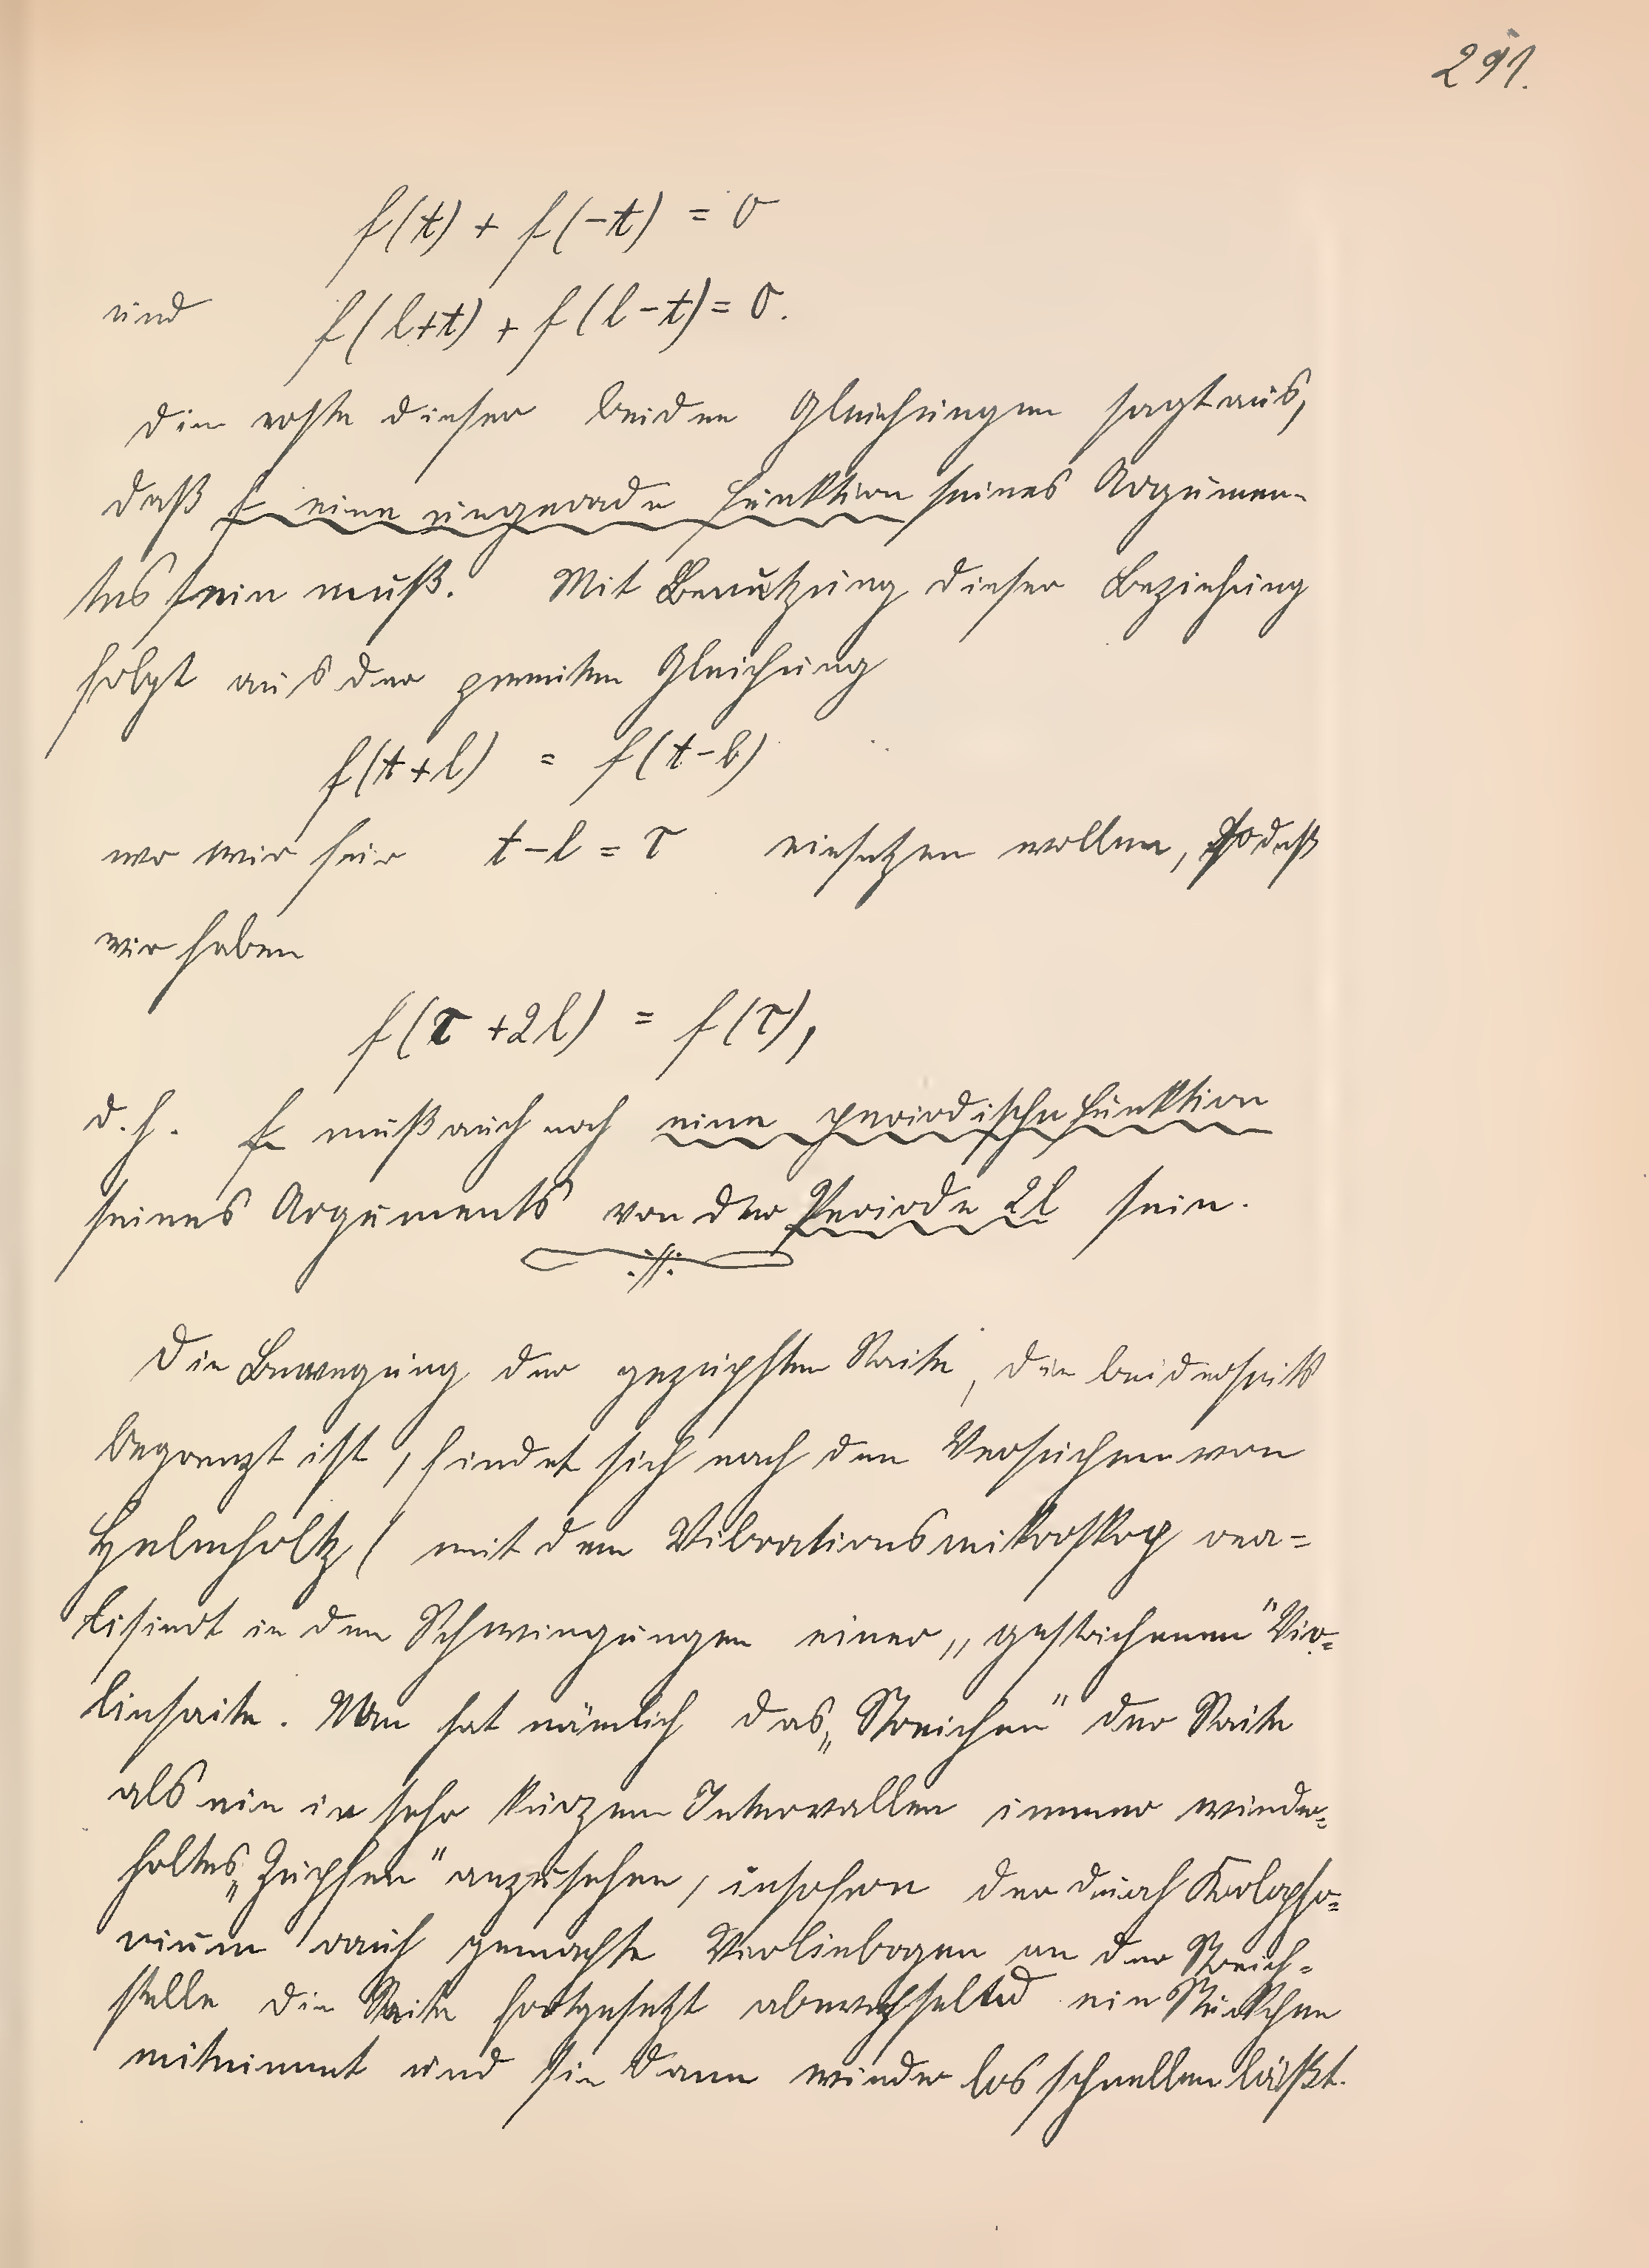 291.
f(t) + f(-t) = 0
und f(l+t) + f(l-t) = 0.
Die erste dieser beiden Gleichungen sagt aus,
daß f eine ungerade Funktion seines Argumen-
tes sein muß. Mit Benutzung dieser Beziehung
folgt aus der zweiten Gleichung
f(t+l) = f(t-l)
wo wir für t-l = τ einsetzen wollen, sodaß
wir haben
f(τ+2l) = f(τ),
d.h. f muß auch noch eine periodische Funktion
seines Arguments von der Periode 2l sein.
Die Bewegung der gezupften Saite, die beiderseits
begrenzt ist, findet sich nach den Versuchen von
Helmholtz (mit dem Vibrationsmikroskop rea=
lisiert in den Schwingungen einer „gestrichenen" Vio=
linsaite. Man hat nämlich das „Streichen" der Saite
als ein in sehr kurzen Intervallen immer wieder=
holtes „Zupfen" anzusehen, insofern der durch Kolopho=
nium rauh gemachte Violinbogen an der Streich=
stelle die Saite fortgesetzt abwechselnd ein Stückchen
mitnimmt und sie dann wieder los schnellen läßt.